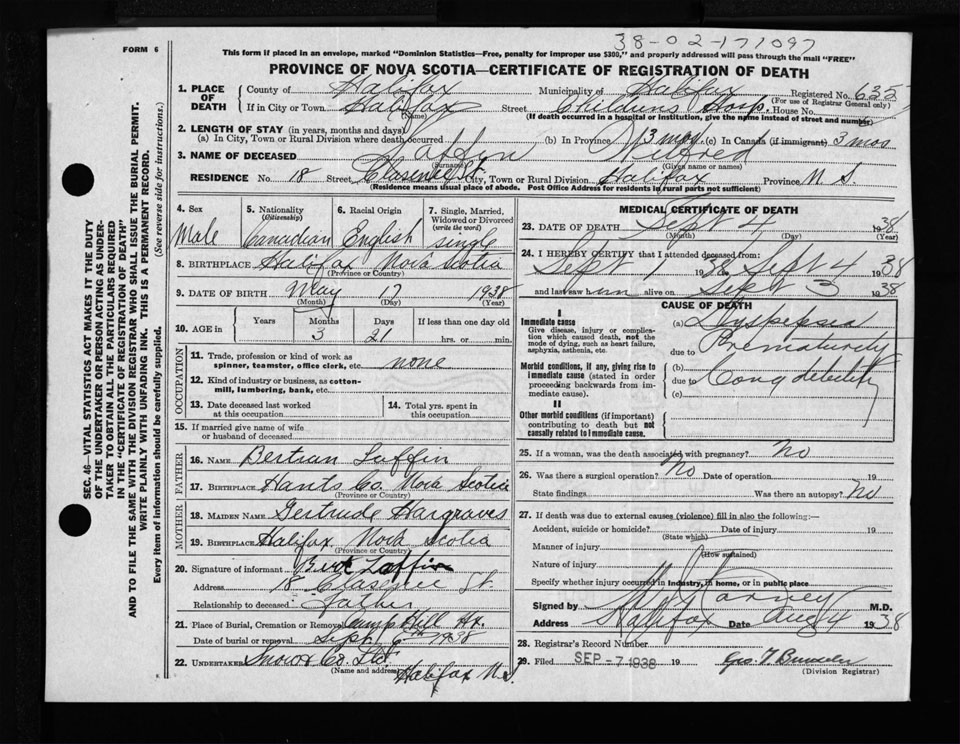 38-02-171097
FORM 6
This form if placed in an envelope, marked "Dominion Statistics—Free, penalty for improper use $300," and properly addressed will pass through the mail "FREE"
PROVINCE OF NOVA SCOTIA—CERTIFICATE OF REGISTRATION OF DEATH
1. PLACE OF DEATH County of Halifax Municipality of Halifax Registered No. 635
(For use of Registrar General only)
If in City or Town Halifax Street Childrens Hosp. House No.
(Name) (If death occurred in a hospital or institution, give the name instead of street and number)
2. LENGTH OF STAY (in years, months and days)
(a) In City, Town or Rural Division where death occurred (b) In Province 3 mos. (c) In Canada (if immigrant) 3 mos
3. NAME OF DECEASED Laffin Wilfred
(Surname) (Given name or names)
RESIDENCE No. 18 Street St. City, Town or Rural Division Halifax Province N. S.
(Residence means usual place of abode. Post Office Address for residents in rural parts not sufficient)
4. Sex Male
5. Nationality (Citizenship) Canadian
6. Racial Origin English
7. Single, Married, Widowed or Divorced (write the word) single
8. BIRTHPLACE Halifax Nova Scotia
(Province or Country)
9. DATE OF BIRTH May 17 1938
(Month) (Day) (Year)
10. AGE in Years Months 3 Days 21 If less than one day old hrs. or min.
OCCUPATION
11. Trade, profession or kind of work as spinner, teamster, office clerk, etc. none
12. Kind of industry or business, as cotton-mill, lumbering, bank, etc.
13. Date deceased last worked at this occupation
14. Total yrs. spent in this occupation
15. If married give name of wife or husband of deceased
FATHER
16. Name Bertran Laffin
17. Birthplace Hants Co. Nova Scotia
(Province or Country)
MOTHER
18. Maiden Name Gertrude Hargraves
19. Birthplace Halifax Nova Scotia
(Province or Country)
20. Signature of informant Bert Laffin
Address 18 St
Relationship to deceased Father
21. Place of Burial, Cremation or Removal Camp Hill Hx.
Date of burial or removal Sept 6th 1938
22. UNDERTAKER Snow & Co. Ltd.
(Name and address) Halifax N.S.
MEDICAL CERTIFICATE OF DEATH
23. DATE OF DEATH Sept 4 1938
(Month) (Day) (Year)
24. I HEREBY CERTIFY that I attended deceased from:
Sept 1 1938 Sept 4 1938
and last saw him alive on Sept 3 1938
CAUSE OF DEATH
I
Immediate cause
Give disease, injury or complication which caused death, not the mode of dying, such as heart failure, asphyxia, asthenia, etc.
(a) Dyspepsia
due to Prematurity
Morbid conditions, if any, giving rise to immediate cause (stated in order proceeding backwards from immediate cause).
(b)
due to Cong debility
(c)
II
Other morbid conditions (if important) contributing to death but not causally related to immediate cause.
25. If a woman, was the death associated with pregnancy? No
26. Was there a surgical operation? No Date of operation 19
State findings Was there an autopsy? No
27. If death was due to external causes (violence) fill in also the following:—
Accident, suicide or homicide? Date of injury 19
(State which)
Manner of injury
(How sustained)
Nature of injury
Specify whether injury occurred in industry, in home, or in public place
Signed by M.D.
Address Halifax Date Aug 4 1938
28. Registrar's Record Number
29. Filed SEP -7 1938 19
(Division Registrar)
SEC. 46—VITAL STATISTICS ACT MAKES IT THE DUTY
OF THE UNDERTAKER OR PERSON ACTING AS UNDER-
TAKER TO OBTAIN ALL THE PARTICULARS REQUIRED
IN THE "CERTIFICATE OF REGISTRATION OF DEATH"
AND TO FILE THE SAME WITH THE DIVISION REGISTRAR WHO SHALL ISSUE THE BURIAL PERMIT.
WRITE PLAINLY WITH UNFADING INK. THIS IS A PERMANENT RECORD.
Every item of information should be carefully supplied. (See reverse side for instructions.)